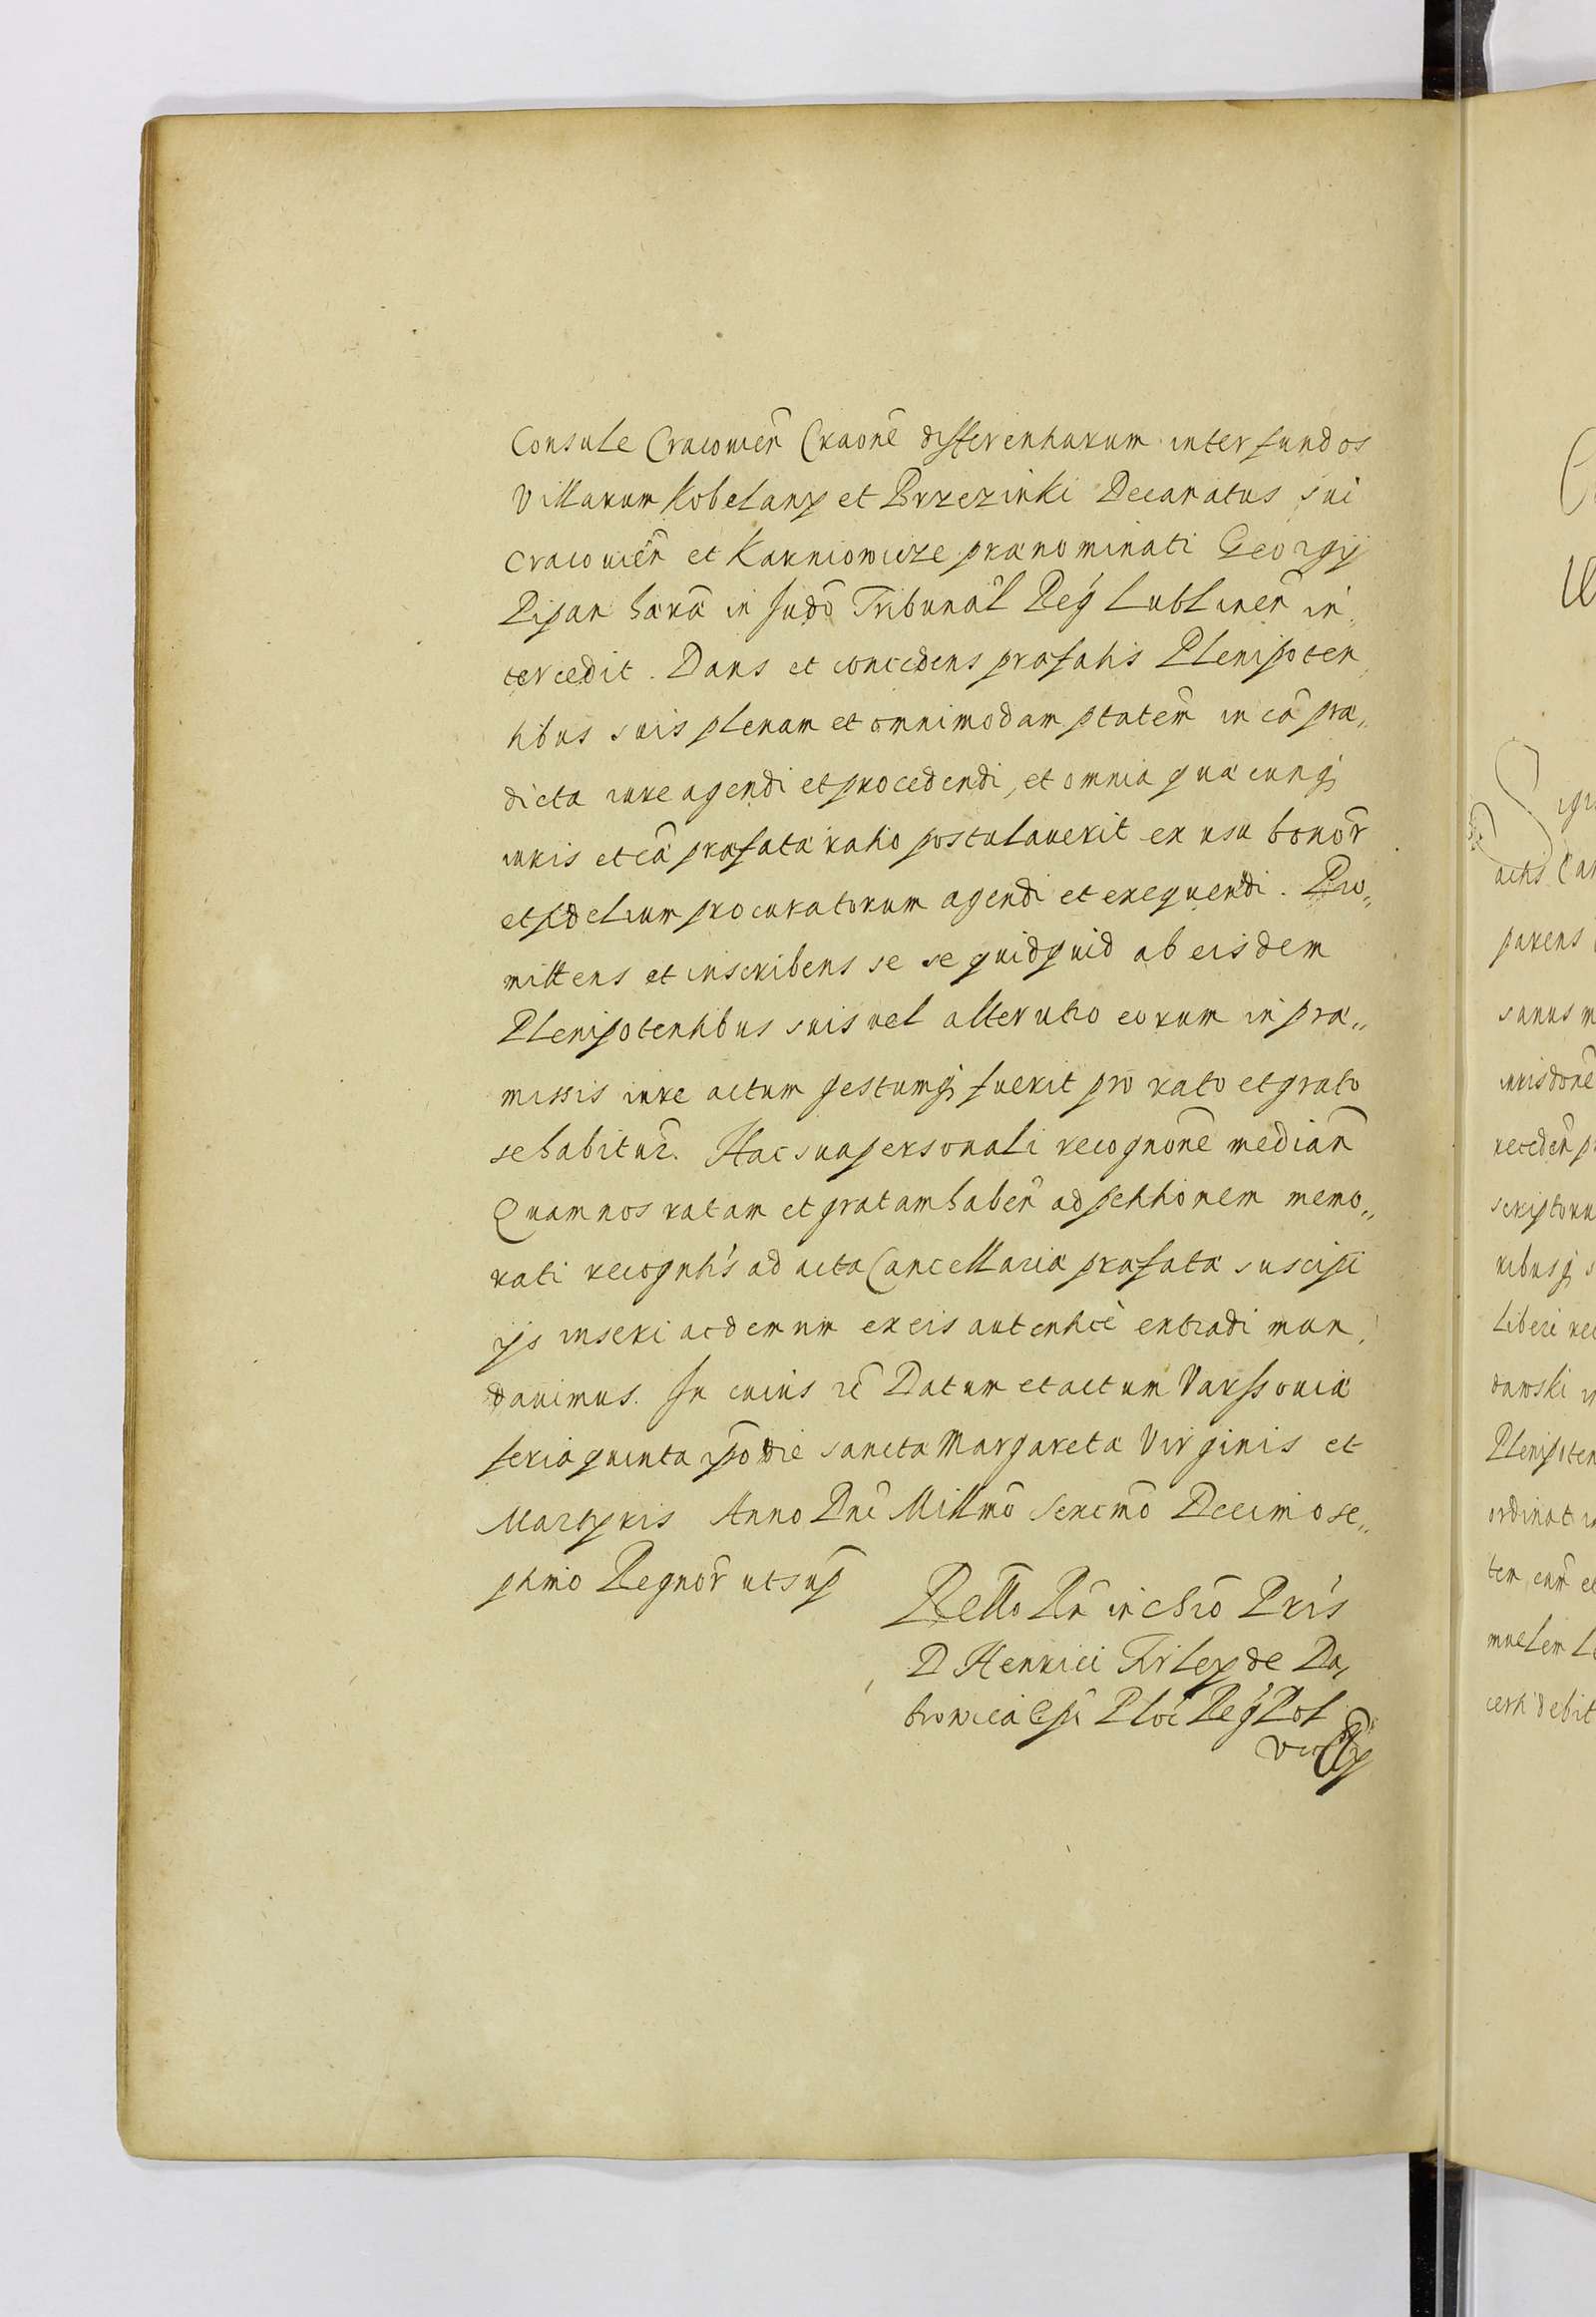 Consule Cracovień Craoñe differentiarum inter fundos
Villarum Kobelany et Brzezinki Decanatus sui
Cracovień et Karniowicze prænominati Georgij
Pipan hæra in Judo Tribunal Reg Lublineń in,
tercedit. Dans et concedens præfatis Plenipoten,
tibus suis plenam et omnimodam ptatem in ca præ,,
dicta iure agendi et procedendi, et omnia quæcunq
iuris et cã præfatæ ratio postulaverit ex usu bonor̃
et fidelium procuratorum agendi et exequendi. Pro,,
mittens et inscribens se se quidquid ab eisdem
Plenipotentibus suis vel alterutro eorum in præ,,
missis iure actum gestumq fuerit pro rato et grato
se habitur̃. Hac sua personali recognoñe median̄
Quam nos ratam et gratam habeń ad petitionem memo,,
rati recognitis ad acta Cancellariæ præfatæ suscipi
ijs inseri ac demum ex eis autentice extradi man,
davimus. In cuius rẽ Datum et actum Varssoviæ
feria quinta ipso die sanctæ Margaretæ Virginis et
Martyris Anno Dni Millmo Sexcmo Decimo se,,
ptimo Regnor̃ ut sup̃
Rello Rń in Chro Pris
D Henrici Firley de Da,
browica Epi Ploc Reg Pol
Vic

parens
sanus m
scriptoru
ribusq s
Liberi rec
dawski in
Plenipoten
ordinat